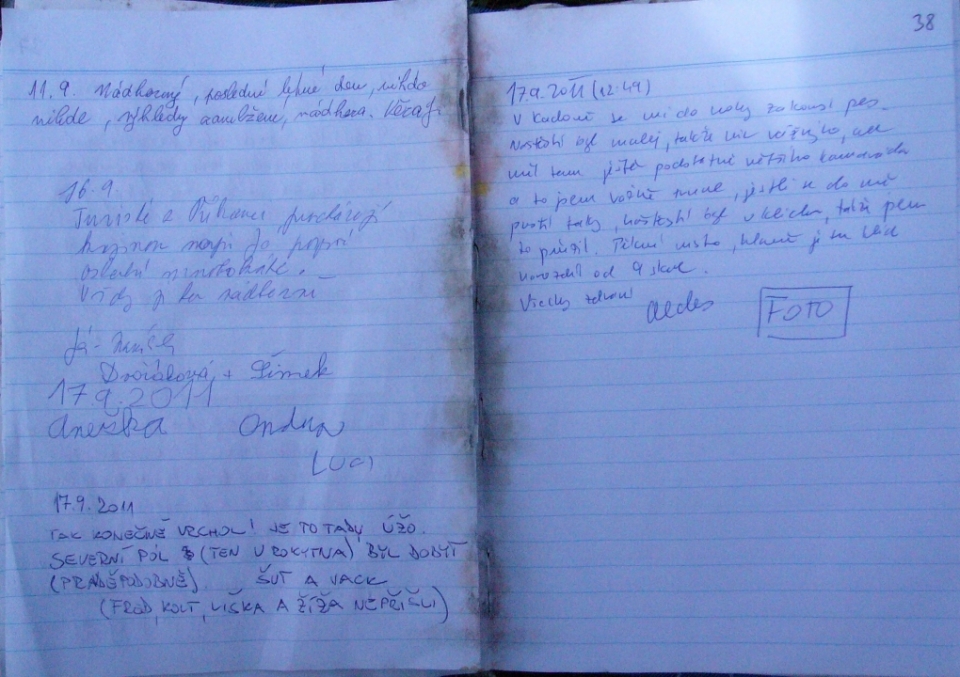 11.9. Nádherný, poslední letní den, nikdo
nikde, výhledy zamlžené, nádhera.
16.9
Turisté z Příbrami procházejí
krajinou
Vždy je to nádherné
Já-
Dvořáková + Šimek
17 9. 2011
Anežka Ondra
LUCI
17.9. 2011
TAK KONEČNĚ VRCHOL! JE TO TADY ÚŽO.
SEVERNÍ PÓL (TEN U ROKYTNA) BYL DOBYT
(PRADĚPODOBNĚ) ŠUT A VACK
(FROD, KOLT, LIŠKA A ŽÍŽA NEPŘIŠLI)
38
17.9.2011 (12:49)
V se mi do nohy zakousl pes.
Naštěstí byl malej, takže nic vážnýho, ale
měl tam ještě podstatně většího kamaráda
a to jsem vážně trnul, jestli se do mě
pustí taky, naštěstí byl v klidu, takže jsem
to přežil. Pěkné místo, hlavně je tu klid
od skal.
Všechny zdraví
FOTO